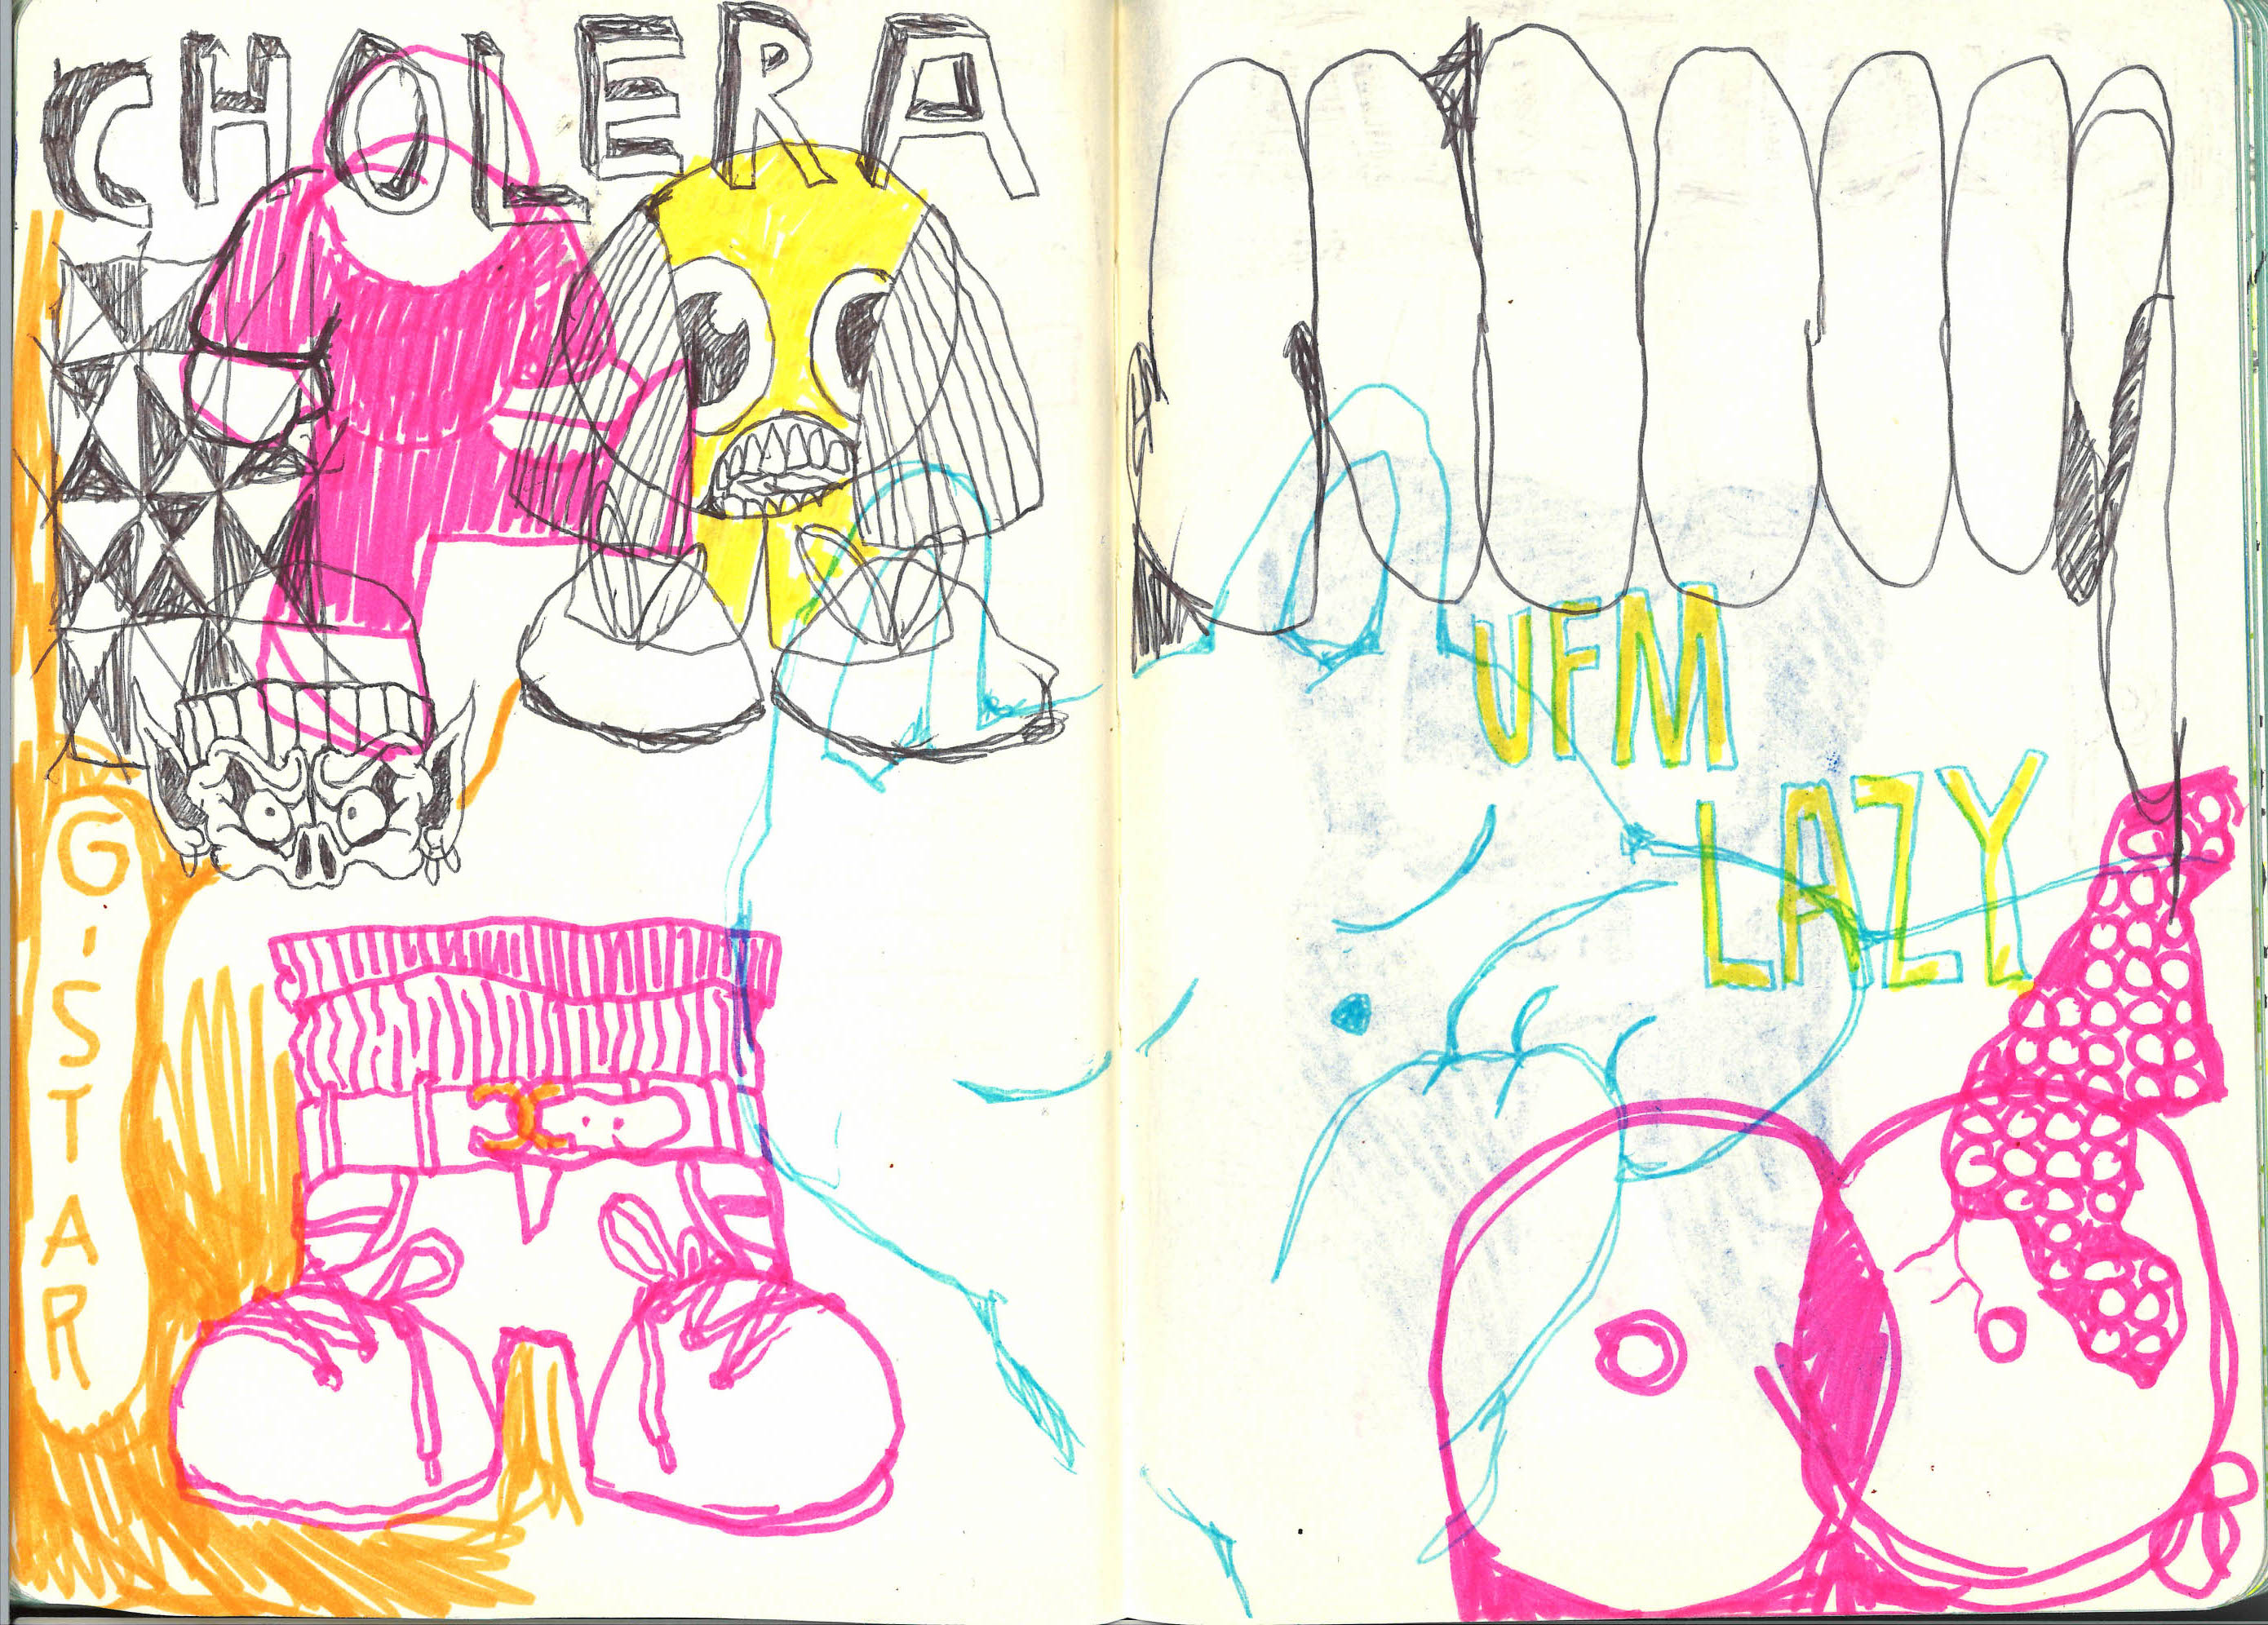 CHOLERA
G-STAR
UFM
LAZY